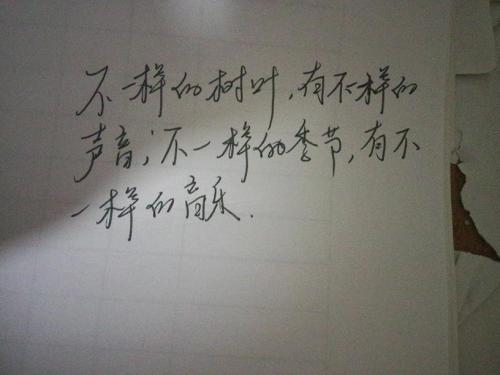 不一样的树叶,有不样的
声音;不一样的季节,有不
一样的音乐.